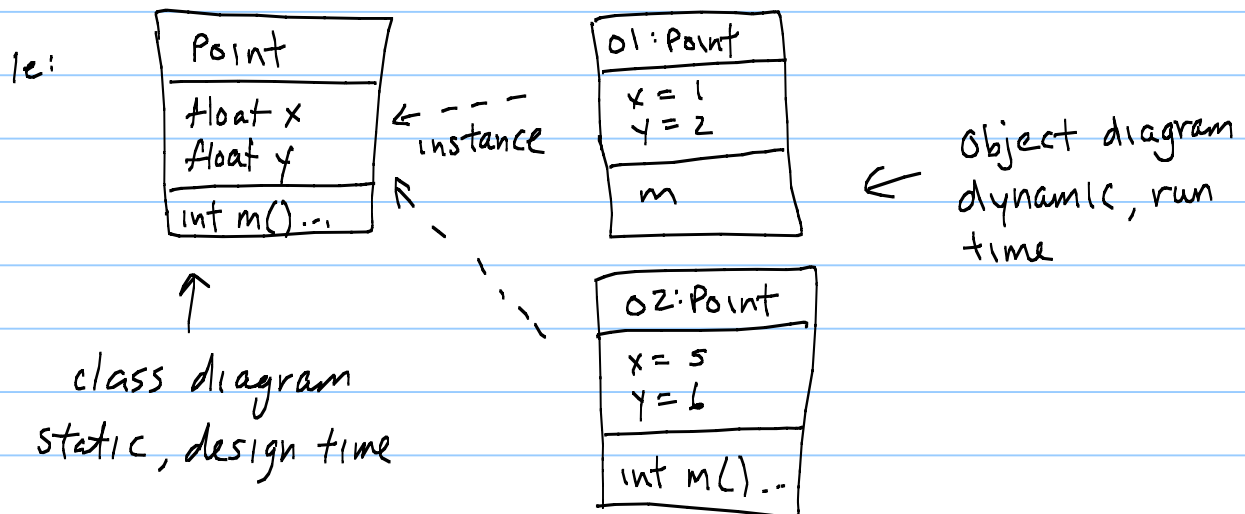 ie:
Point
float x
float y
int m()...
instance
o1:Point
x = 1
y = 2
m
object diagram
dynamic, run
time
o2:Point
x = 5
y = 6
int m()...
class diagram
static, design time